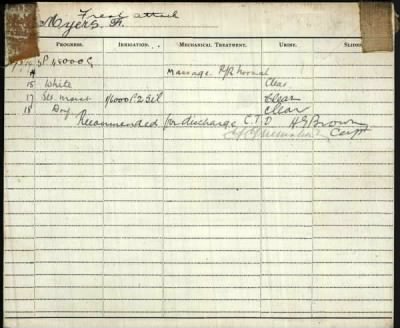 First attack
Myers. A.
PROGRESS. IRRIGATION. MECHANICAL TREATMENT. URINE. SLIDES
Massage. R/R normal
15 White Clear
17 Sl. moist 1/6000 P. 2 Clear
18 Dry Clear
Recommended for discharge C.T.O H G Brown
Capt